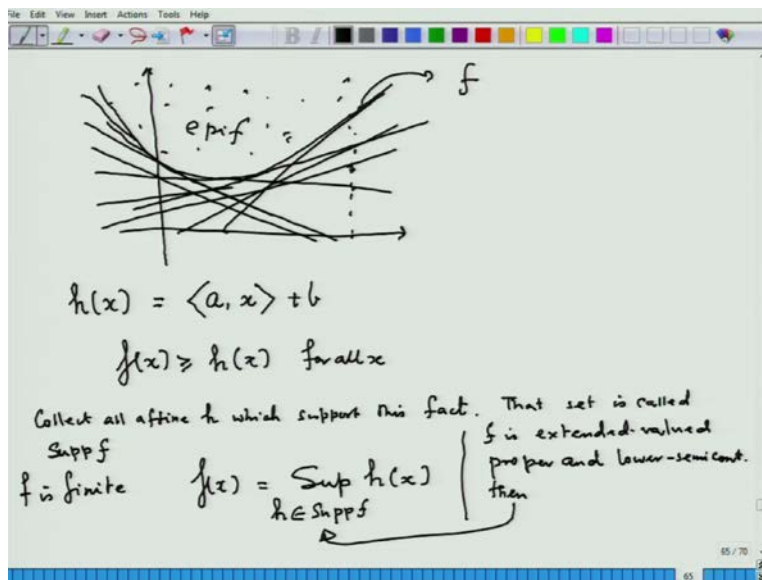 File Edit View Insert Actions Tools Help
f
epi f
h(x) = ⟨a, x⟩ + b
f(x) ≥ h(x) for all x
Collect all affine h which support this fact. That set is called
Supp f
f is finite f(x) = Sup h(x)
h ∈ Supp f
f is extended-valued
proper and lower-semicont.
then
65 / 70
65